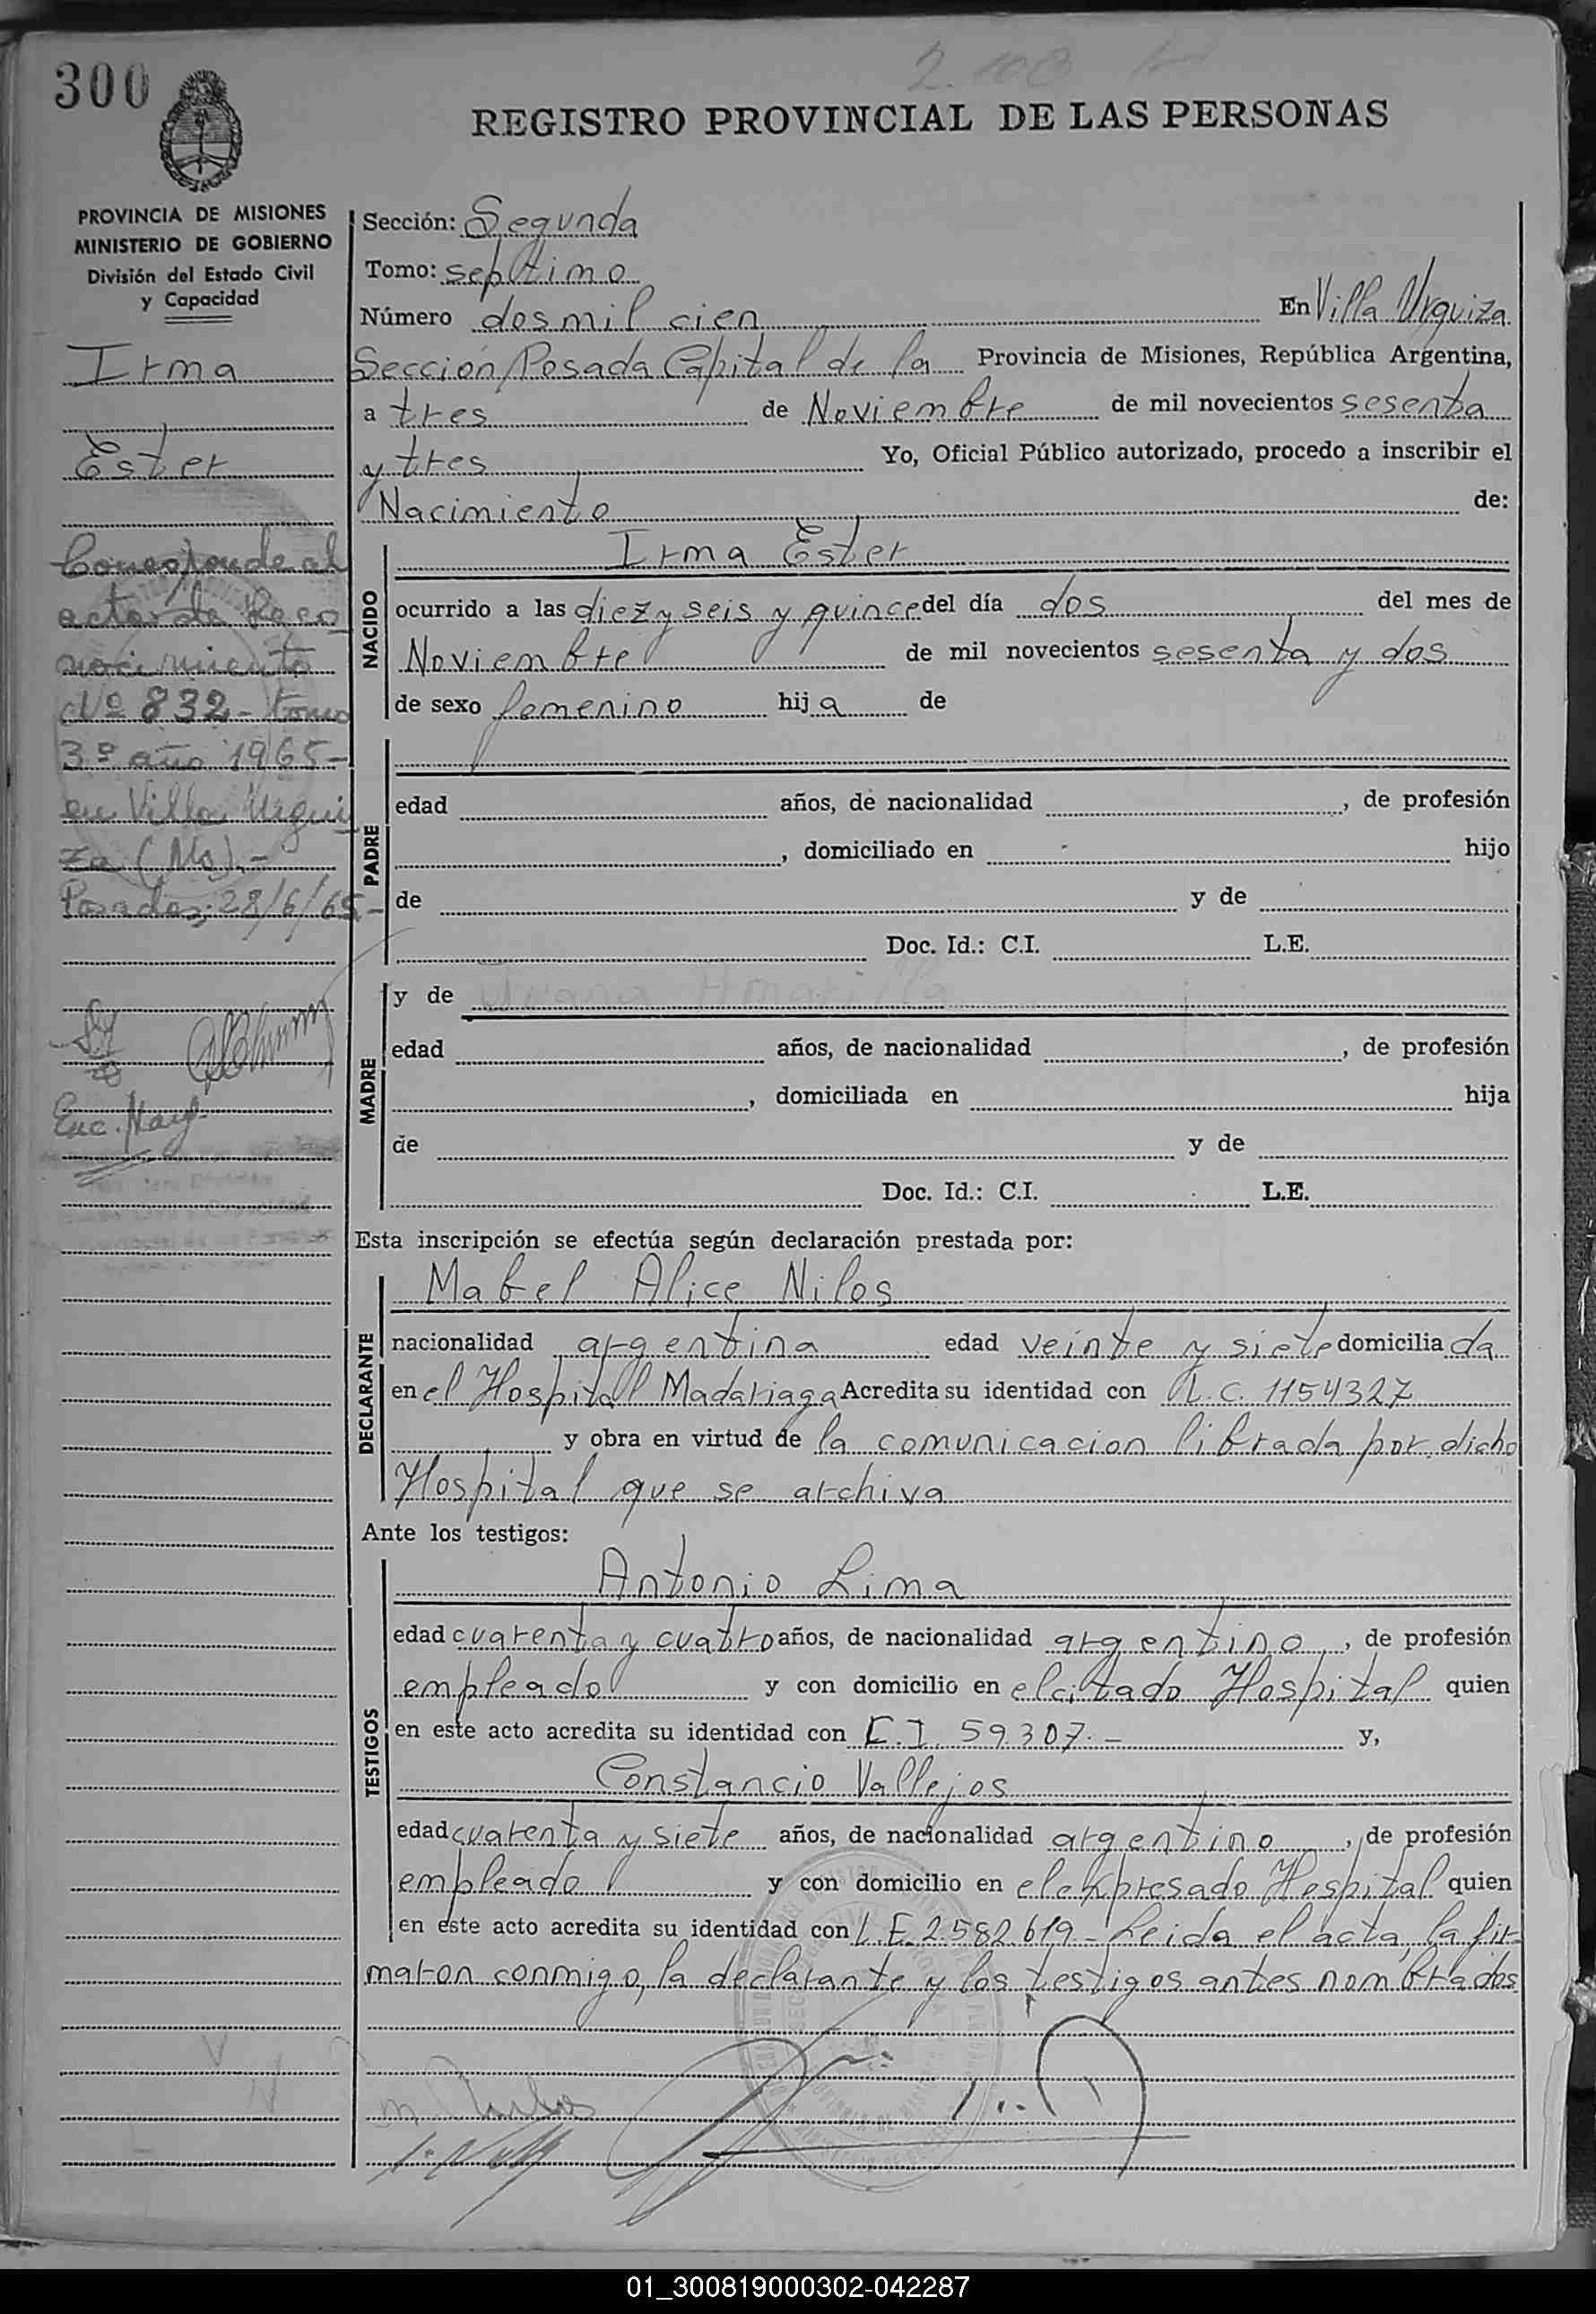 300
REGISTRO PROVINCIAL DE LAS PERSONAS
PROVINCIA DE MISIONES
MINISTERIO DE GOBIERNO
División del Estado Civil
y Capacidad
Irma
Ester
Corresponde al
acta de Reco
nocimiento
Nº 832 - tomo
3º año 1965-
en Villa Urqui
za (Ms).-
Posadas; 28/6/65-
Enc.
Sección: Segunda
Tomo: septimo
Número dos mil cien En Villa Urquiza
Sección Posada Capital de la Provincia de Misiones, República Argentina,
a tres de Noviembre de mil novecientos sesenta
y tres Yo, Oficial Público autorizado, procedo a inscribir el
Nacimiento de:
NACIDO
Irma Ester
ocurrido a las diez y seis y quince del día dos del mes de
Noviembre de mil novecientos sesenta y dos
de sexo femenino hija de
PADRE
edad años, de nacionalidad , de profesión
, domiciliado en hijo
de y de
Doc. Id.: C.I. L.E.
MADRE
y de
edad años, de nacionalidad , de profesión
, domiciliada en hija
de y de
Doc. Id.: C.I. L.E.
Esta inscripción se efectúa según declaración prestada por:
DECLARANTE
Mabel Alice Nilos
nacionalidad argentina edad veinte y siete domiciliada
en el Hospital Madariaga Acredita su identidad con L.C. 1154327
y obra en virtud de la comunicacion librada por dicho
Hospital que se archiva
Ante los testigos:
TESTIGOS
Antonio Lima
edad cuarenta y cuatro años, de nacionalidad argentino , de profesión
empleado y con domicilio en el citado Hospital quien
en este acto acredita su identidad con C.I. 59.307.- y,
Constancio Vallejos
edad cuarenta y siete años, de nacionalidad argentino , de profesión
empleado y con domicilio en el expresado Hospital quien
en este acto acredita su identidad con L.E. 2.582.619 - Leida el acta, la fir
maron conmigo, la declarante y los testigos antes nombrados
01_300819000302-042287